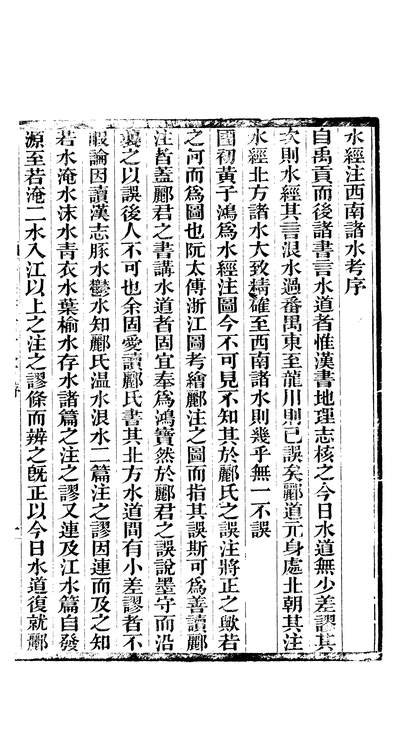 水經注西南諸水考序
自禹貢而後諸書言水道者惟漢書地理志核之今日水道無少差謬其
次則水經其言浪水過番禺東至龍川則已誤矣酈道元身處北朝其注
水經北方諸水大致精確至西南諸水則幾乎無一不誤
國初黃子鴻爲水經注圖今不可見不知其於酈氏之誤注將正之歟若
之何而爲圖也阮太傅浙江圖考繪酈注之圖而指其誤斯可爲善讀酈
注者蓋酈君之書講水道者固宜奉爲鴻寶然於酈君之誤說墨守而沿
襲之以誤後人不可也余固愛讀酈氏書其北方水道間有小差謬者不
暇論因讀漢志豚水鬱水知酈氏温水浪水二篇注之謬因連而及之知
若水淹水沬水青衣水葉榆水存水諸篇之注之謬又連及江水篇自發
源至若淹二水入江以上之注之謬條而辨之旣正以今日水道復就酈